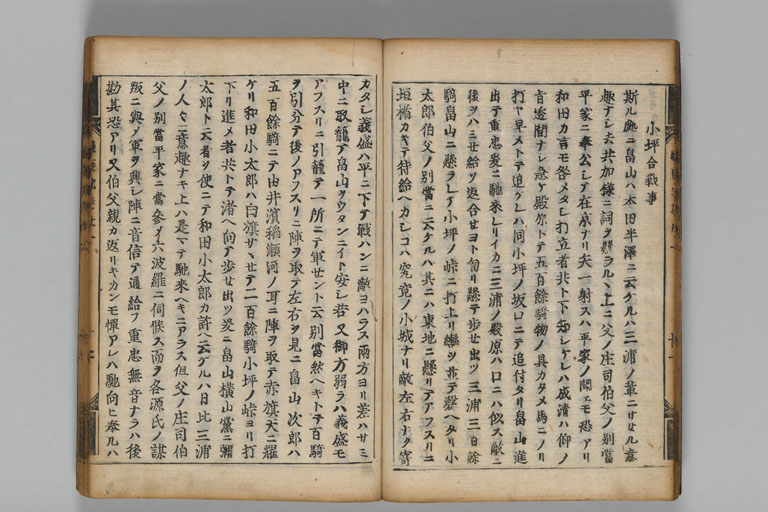 小坪合戰事
斯ル處ニ畠山ハ本田半澤ニ云ケルハ三浦ノ輩ニサセル意
趣ナシ去共加樣ニ詞ヲ懸ラルヽ上ニ父ノ庄司伯父ノ別當
平家ニ奉公シテ在京ナリ矢一射スハ平家ノ聞エモ恐アリ
和田カ言モ咎メタシ打立者共ト下知シケレハ成淸ハ仰ノ
旨透間ナシ急ケ殿原トテ五百餘騎物ノ具カタメ馬ニノリ
打ヤ早メトテ追クレハ同小坪ノ坂口ニテ追付タリ畠山進
出テ重忠爰ニ馳來レリイカニ三浦ノ殿原ハ口ニハ似ス敵ニ
後ヲハミセ給ソ返合セヨト訇リ懸テ歩セ出ツ三浦三百餘
騎畠山ニ懸ラレテ小坪ノ峠ニ打上リ轡ヲ並テ磬ヘタリ小
太郎伯父ノ別當ニ云ケルハ其ニハ東地ニ懸リテアフスリニ
垣楯カキテ待給ヘカシコハ究竟ノ小城ナリ敵左右ナク寄
カタシ義盛ハ平ニ下テ戰ハンニ敵ヨハラス兩方ヨリ差ハサミ
中ニ取籠テ畠山ヲウタンニイト安シ若又御方弱ラハ義盛モ
アフスリニ引籠テ一所ニテ軍セント云別當然ヘキトテ百騎
ヲ引分テ後ノアフスリニ陣ヲ取テ左右ヲ見ニ畠山次郎ハ
五百餘騎ニテ由井濱稻瀬河ノ耳ニ陣ヲ取テ赤旗天ニ耀
ケリ和田小太郎ハ白旗サヽセテ二百餘騎小坪ノ峠ヨリ打
下リ進メ者共トテ渚ヘ向テ歩セ出ツ爰ニ畠山横山黨ニ彌
太郎ト云者ヲ使ニテ和田小太郎カ許ヘ云ケルハ日比三浦
ノ人々ニ意趣ナキ上ハ是マテ馳來ヘキニアラス但父ノ庄司伯
父ノ別當平家ニ當參シテ六波羅ニ伺候ス而ヲ各源氏ノ謀
叛ニ與ノ軍ヲ興シ陣ニ音信テ通給フ重忠無音ナラハ後
勘其恐アリ又伯父親カ返リキカンモ憚アレハ馳向ヒ奉ルハ